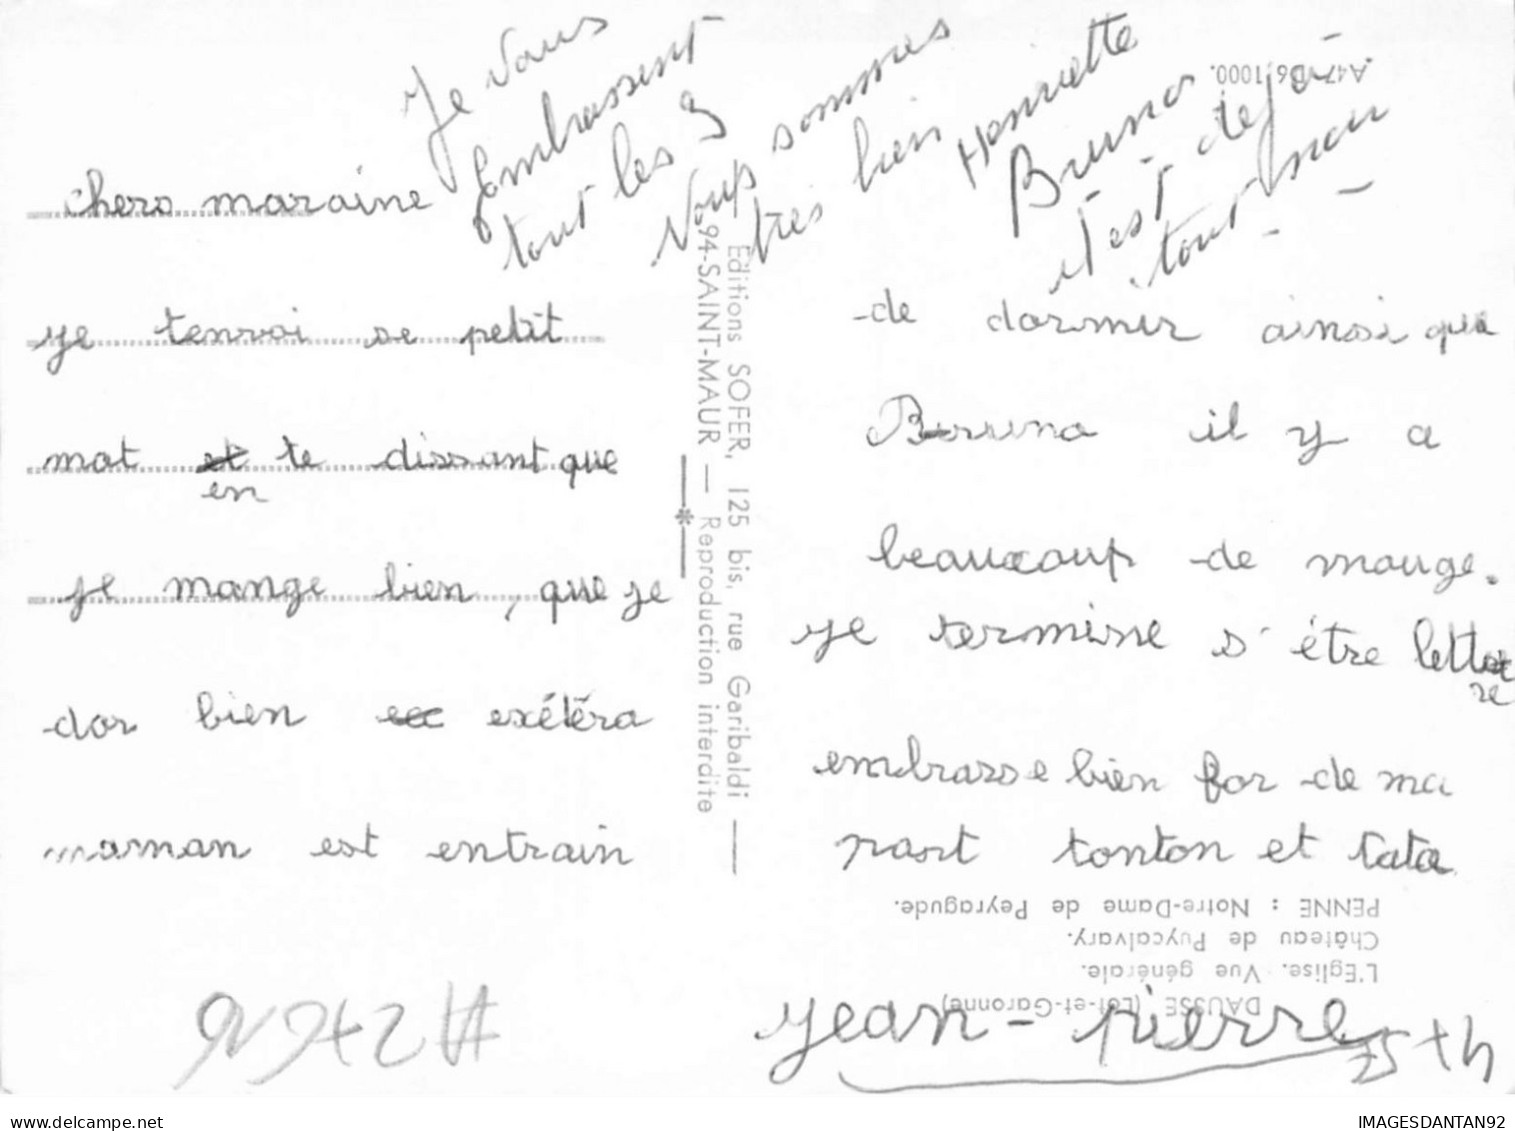 chers maraine
je tenvoi se petit
mot et te dissant que
en
je mange bien, que je
dor bien ec exétéra
maman est entrain
de dormir ainsi que
Bruno il y a
beaucoup de mouge.
je termine s'être lettre
re
embrasse bien for de ma
part tonton et tata
jean-pierre
Je vous
embrassent
tout les 3
Nous sommes
tres bien
Henriette
Bruno
il est déjà
tout noir
Editions SOFER, 125 bis, rue Garibaldi —
94-SAINT-MAUR — Reproduction interdite
A47 D6 1000.
DAUSSE (Lot-et-Garonne)
L'Eglise. Vue générale.
Château de Puycalvary.
PENNE : Notre-Dame de Peyragude.
delcampe.net
IMAGESDANTAN92